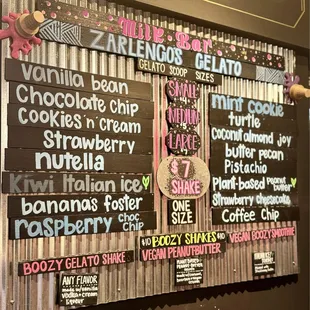 Milk Bar
ZARLENGOS GELATO
GELATO SCOOP SIZES
SMALL
MEDIUM
LARGE
$7
SHAKE
ONE
SIZE
vanilla bean
Chocolate Chip
COOKIES 'n' CREAM
Strawberry
nutella
Kiwi Italian ice
bananas foster
raspberry choc chip
mint cookie
turtle
coconut almond joy
butter pecan
Pistachio
Plant-based peanut butter
Strawberry cheesecake
Coffee Chip
BOOZY GELATO SHAKE
ANY FLAVOR
BOOZY SHAKES
VEGAN PEANUTBUTTER
VEGAN BOOZY SMOOTHIE